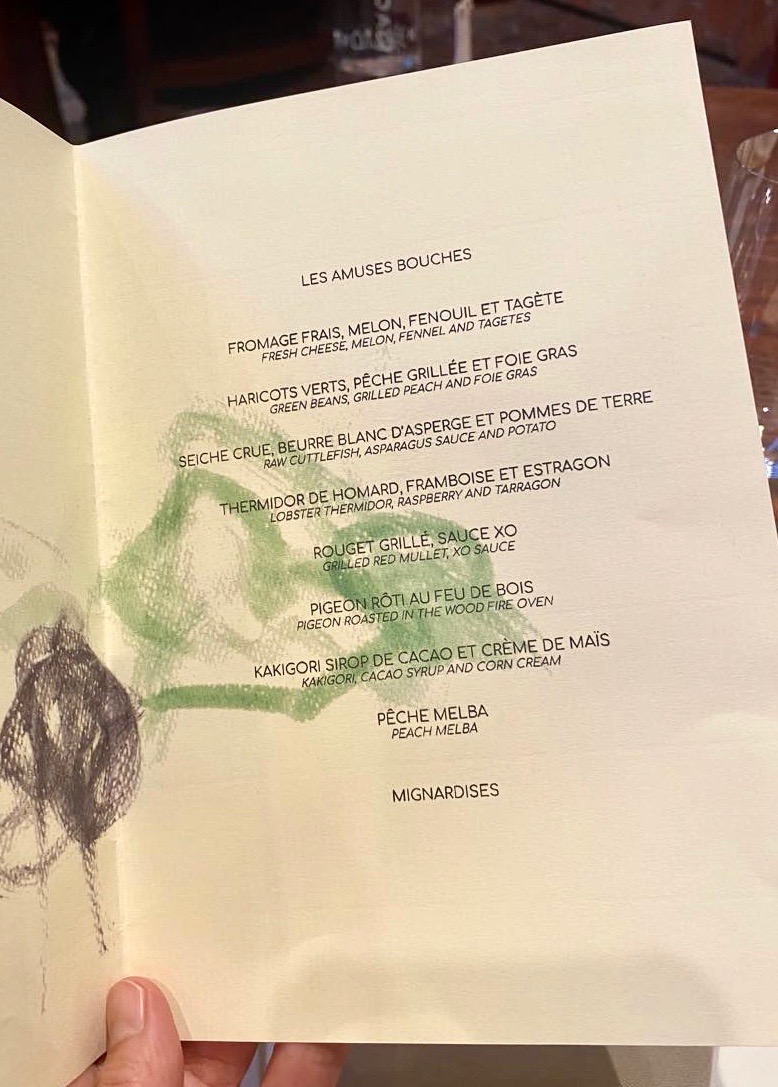 LES AMUSES BOUCHES
FROMAGE FRAIS, MELON, FENOUIL ET TAGÈTE
FRESH CHEESE, MELON, FENNEL AND TAGETES
HARICOTS VERTS, PÊCHE GRILLÉE ET FOIE GRAS
GREEN BEANS, GRILLED PEACH AND FOIE GRAS
SEICHE CRUE, BEURRE BLANC D'ASPERGE ET POMMES DE TERRE
RAW CUTTLEFISH, ASPARAGUS SAUCE AND POTATO
THERMIDOR DE HOMARD, FRAMBOISE ET ESTRAGON
LOBSTER THERMIDOR, RASPBERRY AND TARRAGON
ROUGET GRILLÉ, SAUCE XO
GRILLED RED MULLET, XO SAUCE
PIGEON RÔTI AU FEU DE BOIS
PIGEON ROASTED IN THE WOOD FIRE OVEN
KAKIGORI SIROP DE CACAO ET CRÈME DE MAÏS
KAKIGORI, CACAO SYRUP AND CORN CREAM
PÊCHE MELBA
PEACH MELBA
MIGNARDISES